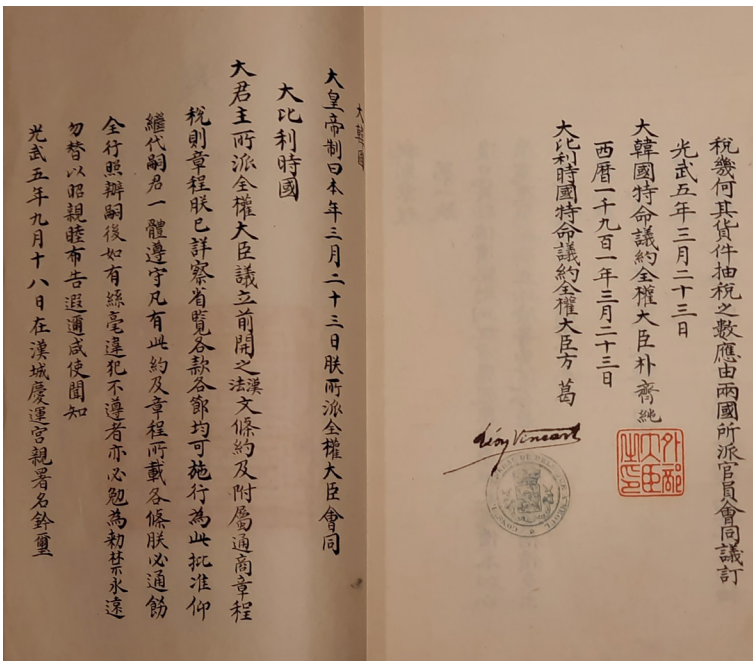 稅幾何其貨件抽稅之數應由兩國所派官員會同議訂
光武五年三月二十三日
大韓國特命議約全權大臣朴齊純
西曆一千九百一年三月二十三日
大比利時國特命議約全權大臣方葛
Léon Vincart
外部大臣之印
大韓國
大皇帝制曰本年三月二十三日朕所派全權大臣會同
大比利時國
大君主所派全權大臣議立前開之漢法文條約及附屬通商章程
稅則章程朕已詳察省覽各款各節均可施行為此批准仰
繼代嗣君一體遵守凡有此約及章程所載各條朕必通飭
全行照辦嗣後如有絲毫違犯不遵者亦必勉為勑禁永遠
勿替以昭親睦布告遐邇咸使聞知
光武五年九月十八日在漢城慶運宮親署名鈐璽